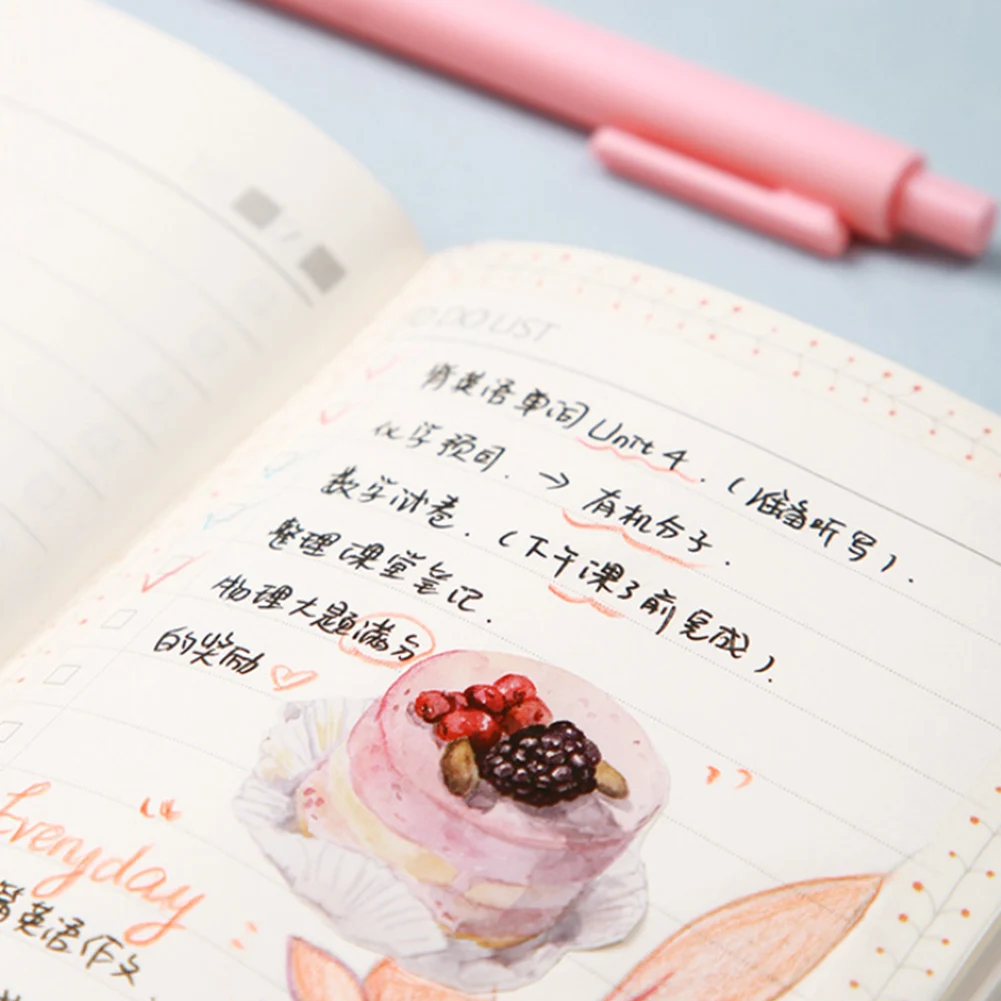 TO DO LIST
背英语单词 Unit 4. (准备听写).
化学预习. → 有机分子.
数学试卷. (下午课3前完成).
整理课堂笔记.
物理大题满分
的奖励
Everyday
背英语作文